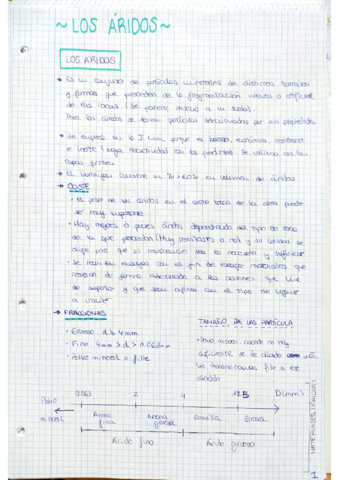 ~ LOS ÁRIDOS ~
LOS ARIDOS
Es un conjunto de partículas minerales de distintos tamaños
y formas que proceden de la fragmentación natural o artificial
de las rocas (Se parece mucho a un suelo).
Para los áridos se toman partículas seleccionadas por sus propiedades
Se emplea en la I. Civil porque es barato, económico, resistente
e inerte (baja reactividad con los productos. Se utilizan en las
capas firmes
El hormigón consiste en 70 > 60% en volumen de áridos
COSTE
El peso de los áridos en el coste total de la obra puede
ser muy importante
Hay mejores o peores áridos dependiendo del tipo de roca
de la que procedan (Muy resistentes o no) y su calidad se
exige para que su resistencia sea la necesaria y suficiente
Se realizan ensayos con el fin de escoger materiales que
resistan de forma adecuada a las acciones que
de soportar y que sean afines con el tipo de ligante
a utilizar
FRACCIONES
Grueso d ≥ 4mm
Fino 4mm > d > 0.063mm
Polvo mineral: filler
TAMAÑO DE LAS PARTÍCULA
Polvo mineral cuando no hay
suficiente se le añade
Se denomina filler a ese
añadido
0.063 2 4 D(mm)
Polvo
mineral
Arena fina
Arena gruesa
Gravilla
Grava
Árido fino
Árido grueso
MATERIALES (ÁRIDOS)
1